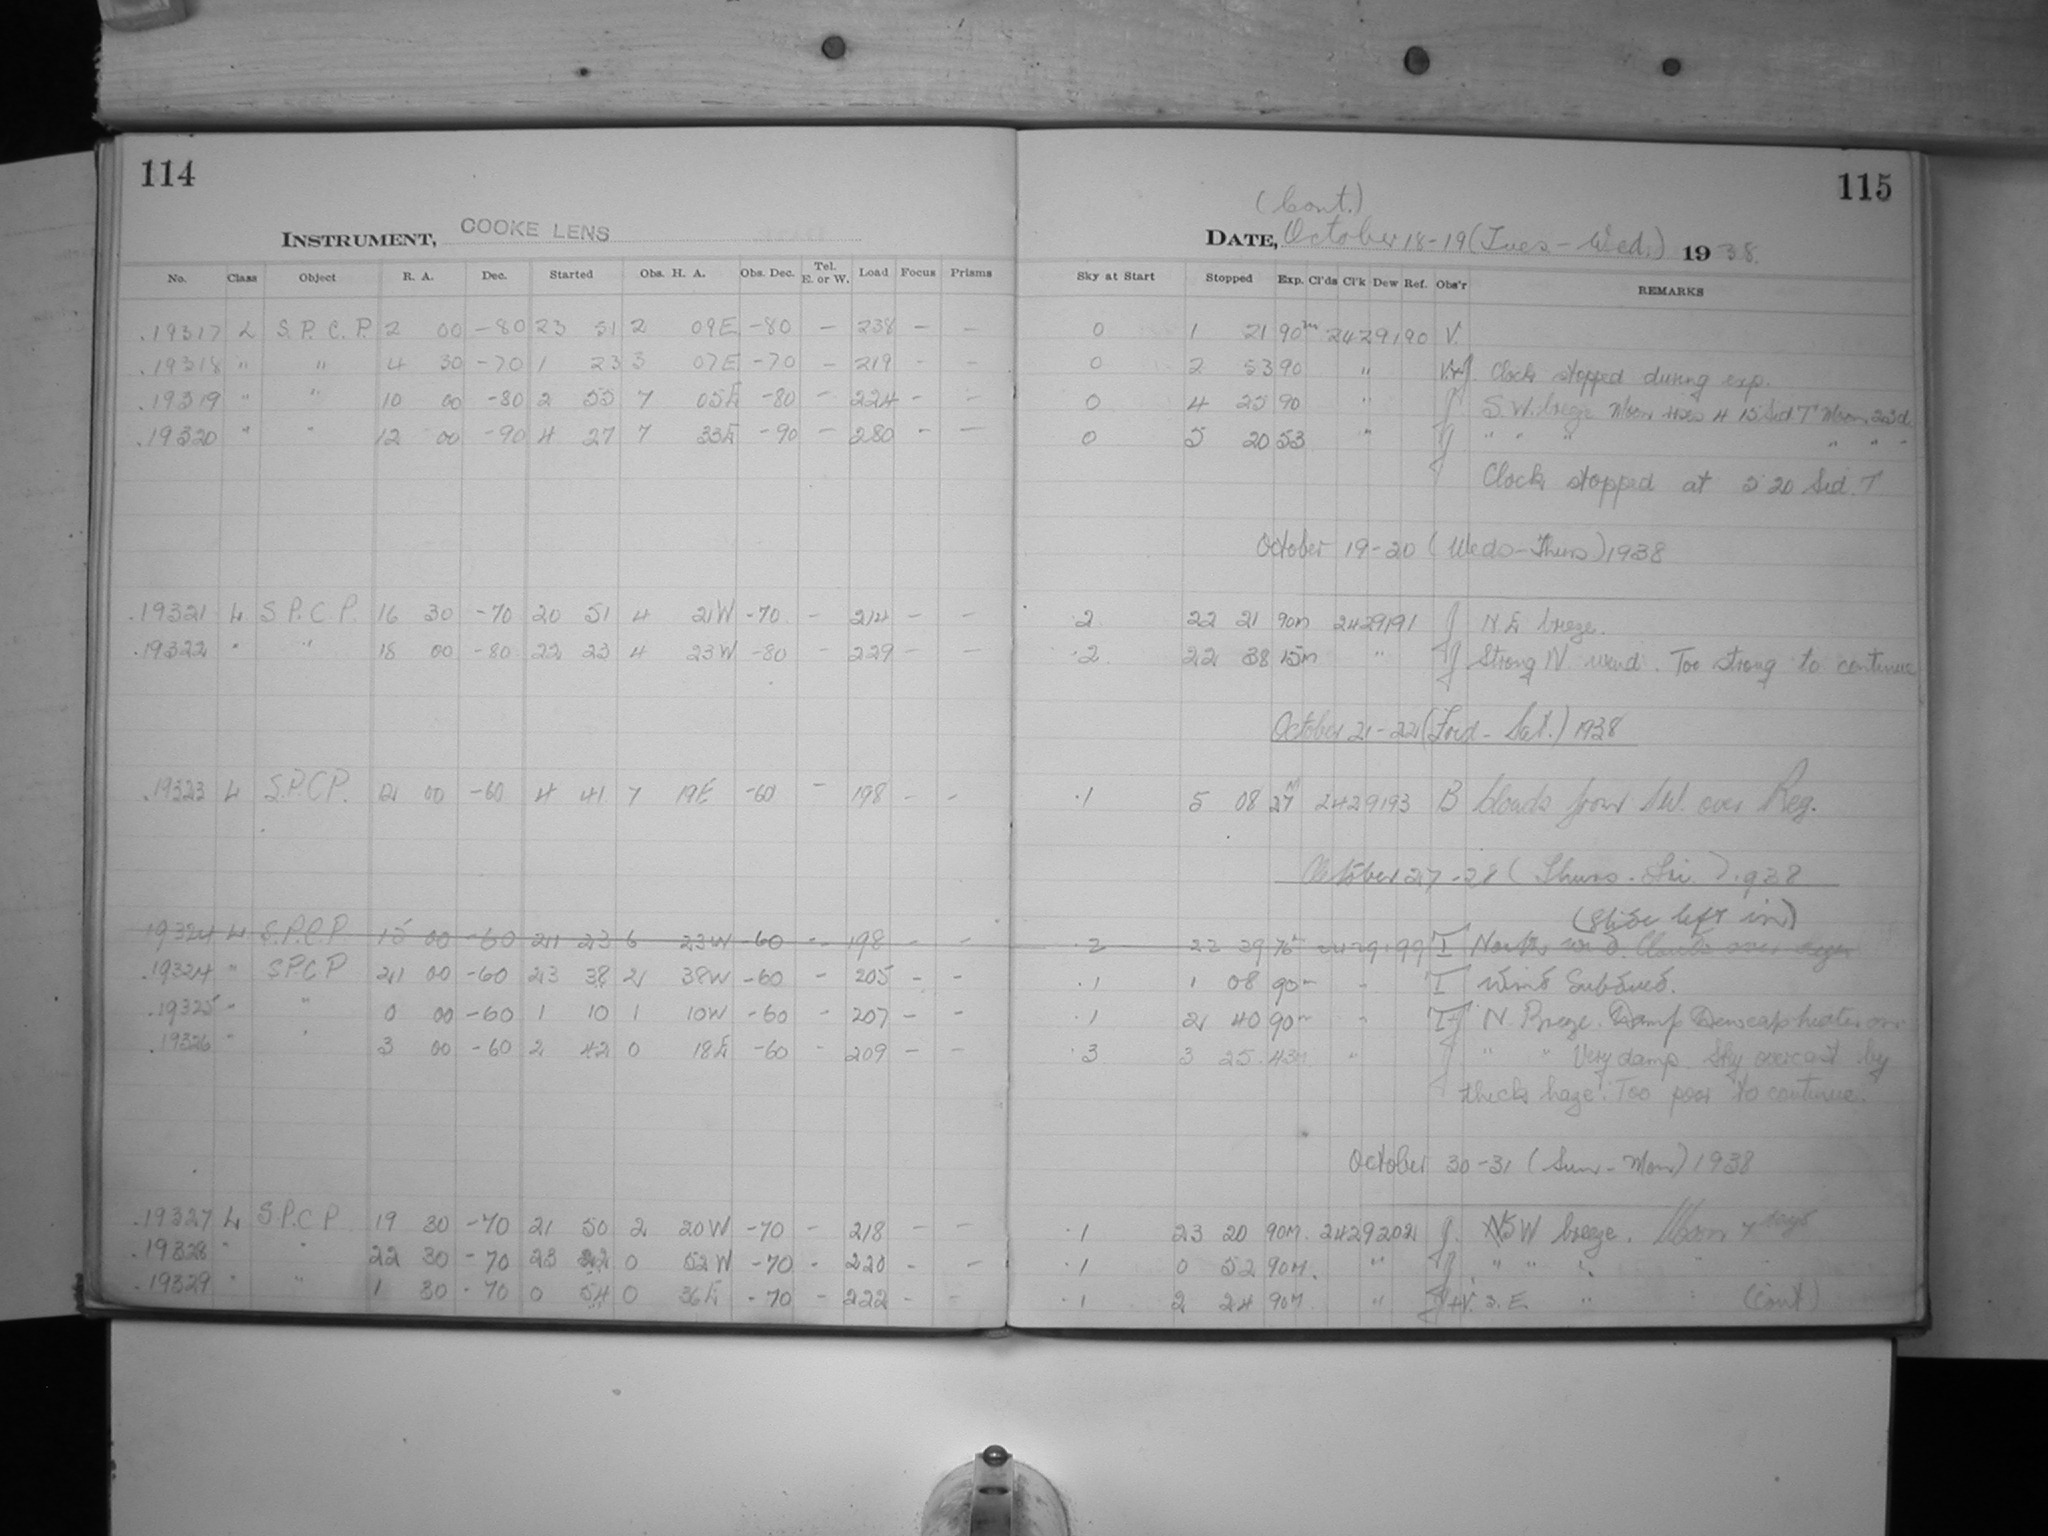 114
INSTRUMENT, COOKE LENS
No. Class Object R. A. Dec. Started Obs. H. A. Obs. Dec. Tel. E. or W. Load Focus Prisms
.19317 L S.P.C.P. 2 00 -80 23 51 2 09E -80 - 238 - -
.19318 " " 4 30 -70 1 23 3 07E -70 - 219 - -
.19319 " " 10 00 -80 2 55 7 05E -80 - 224 - -
.19320 " " 12 00 -90 4 27 7 33E -90 - 280 - -
.19321 L S.P.C.P. 16 30 -70 20 51 4 21W -70 - 214 - -
.19322 " " 18 00 -80 22 23 4 23W -80 - 229 - -
.19323 L S.P.C.P. 12 00 -60 4 41 7 19E -60 - 198 - -
19324 L S.P.C.P. 15 00 -60 21 23 6 23W -60 - 198 - -
.19324 " S.P.C.P 21 00 -60 23 38 2 38W -60 - 205 - -
.19325 " " 0 00 -60 1 10 1 10W -60 - 207 - -
.19326 " " 3 00 -60 2 42 0 18E -60 - 209 - -
.19327 L S.P.C.P 19 30 -70 21 50 2 20W -70 - 218 - -
.19328 " " 22 30 -70 23 22 0 52W -70 - 220 - -
.19329 " " 1 30 -70 0 54 0 36E -70 - 222 - -
115
(Cont.)
DATE, October 18-19 (Tues-Wed.) 1938.
Sky at Start Stopped Exp. Cl'ds Cl'k Dew Ref. Obs'r REMARKS
0 1 21 90m 2429190 V.
0 2 53 90 " V+J. Clock stopped during exp.
0 4 25 90 " J S.W. breeze Moon rises 4 15 Sid. T Moon 23d.
0 5 20 53 " J " " " " " "
Clock stopped at 5 20 Sid. T
October 19-20 (Weds-Thurs) 1938
.2 22 21 90m 2429191 J N E breeze.
.2 22 38 15m " J Strong N. wind. Too strong to continue
October 21-22 (Frid- Sat.) 1938
.1 5 08 27m 2429193 B Clouds from S.W. over Reg.
October 27-28 (Thurs-Fri.) 1938
(Slide left in)
.2 22 39 76 2429199 T North wind. Clouds over region
.1 1 08 90m " T Wind Subdued.
.1 2 40 90m " T+J N. Breeze. Damp Dewcap heater on
.3 3 25 43m " J " " Very damp. Sky overcast by
thick haze. Too poor to continue.
October 30-31 (Sun-Mon) 1938
.1 23 20 90m. 2429202 J. SW breeze. Moon 7 days
.1 0 52 90m. " J " " "
.1 2 24 90m " J+V. S.E. " (Cont)